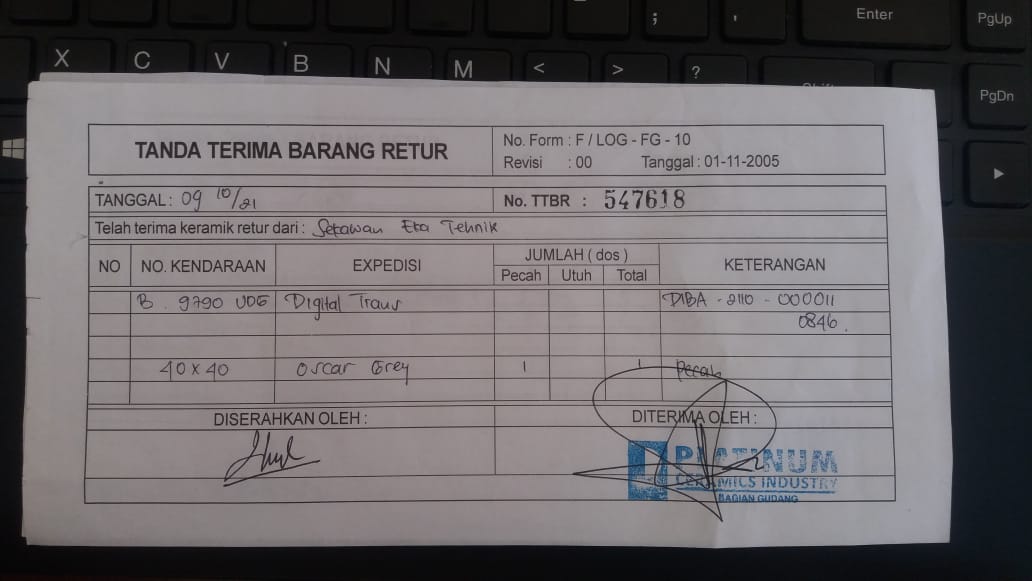 ; ' Enter PgUp
X C V B N M < > ? Shift PgDn
TANDA TERIMA BARANG RETUR
No. Form : F / LOG - FG - 10
Revisi : 00 Tanggal : 01-11-2005
TANGGAL : 09 10/21
No. TTBR : 547618
Telah terima keramik retur dari : Setawan Eka Tehnik
NO NO. KENDARAAN EXPEDISI JUMLAH ( dos ) KETERANGAN
Pecah Utuh Total
B . 9790 UDE Digital Trans DIBA - 2110 - 000011
0846 .
40 x 40 Oscar Grey 1 1 Pecah
DISERAHKAN OLEH : DITERIMA OLEH :
PLATINUM
CERAMICS INDUSTRY
BAGIAN GUDANG